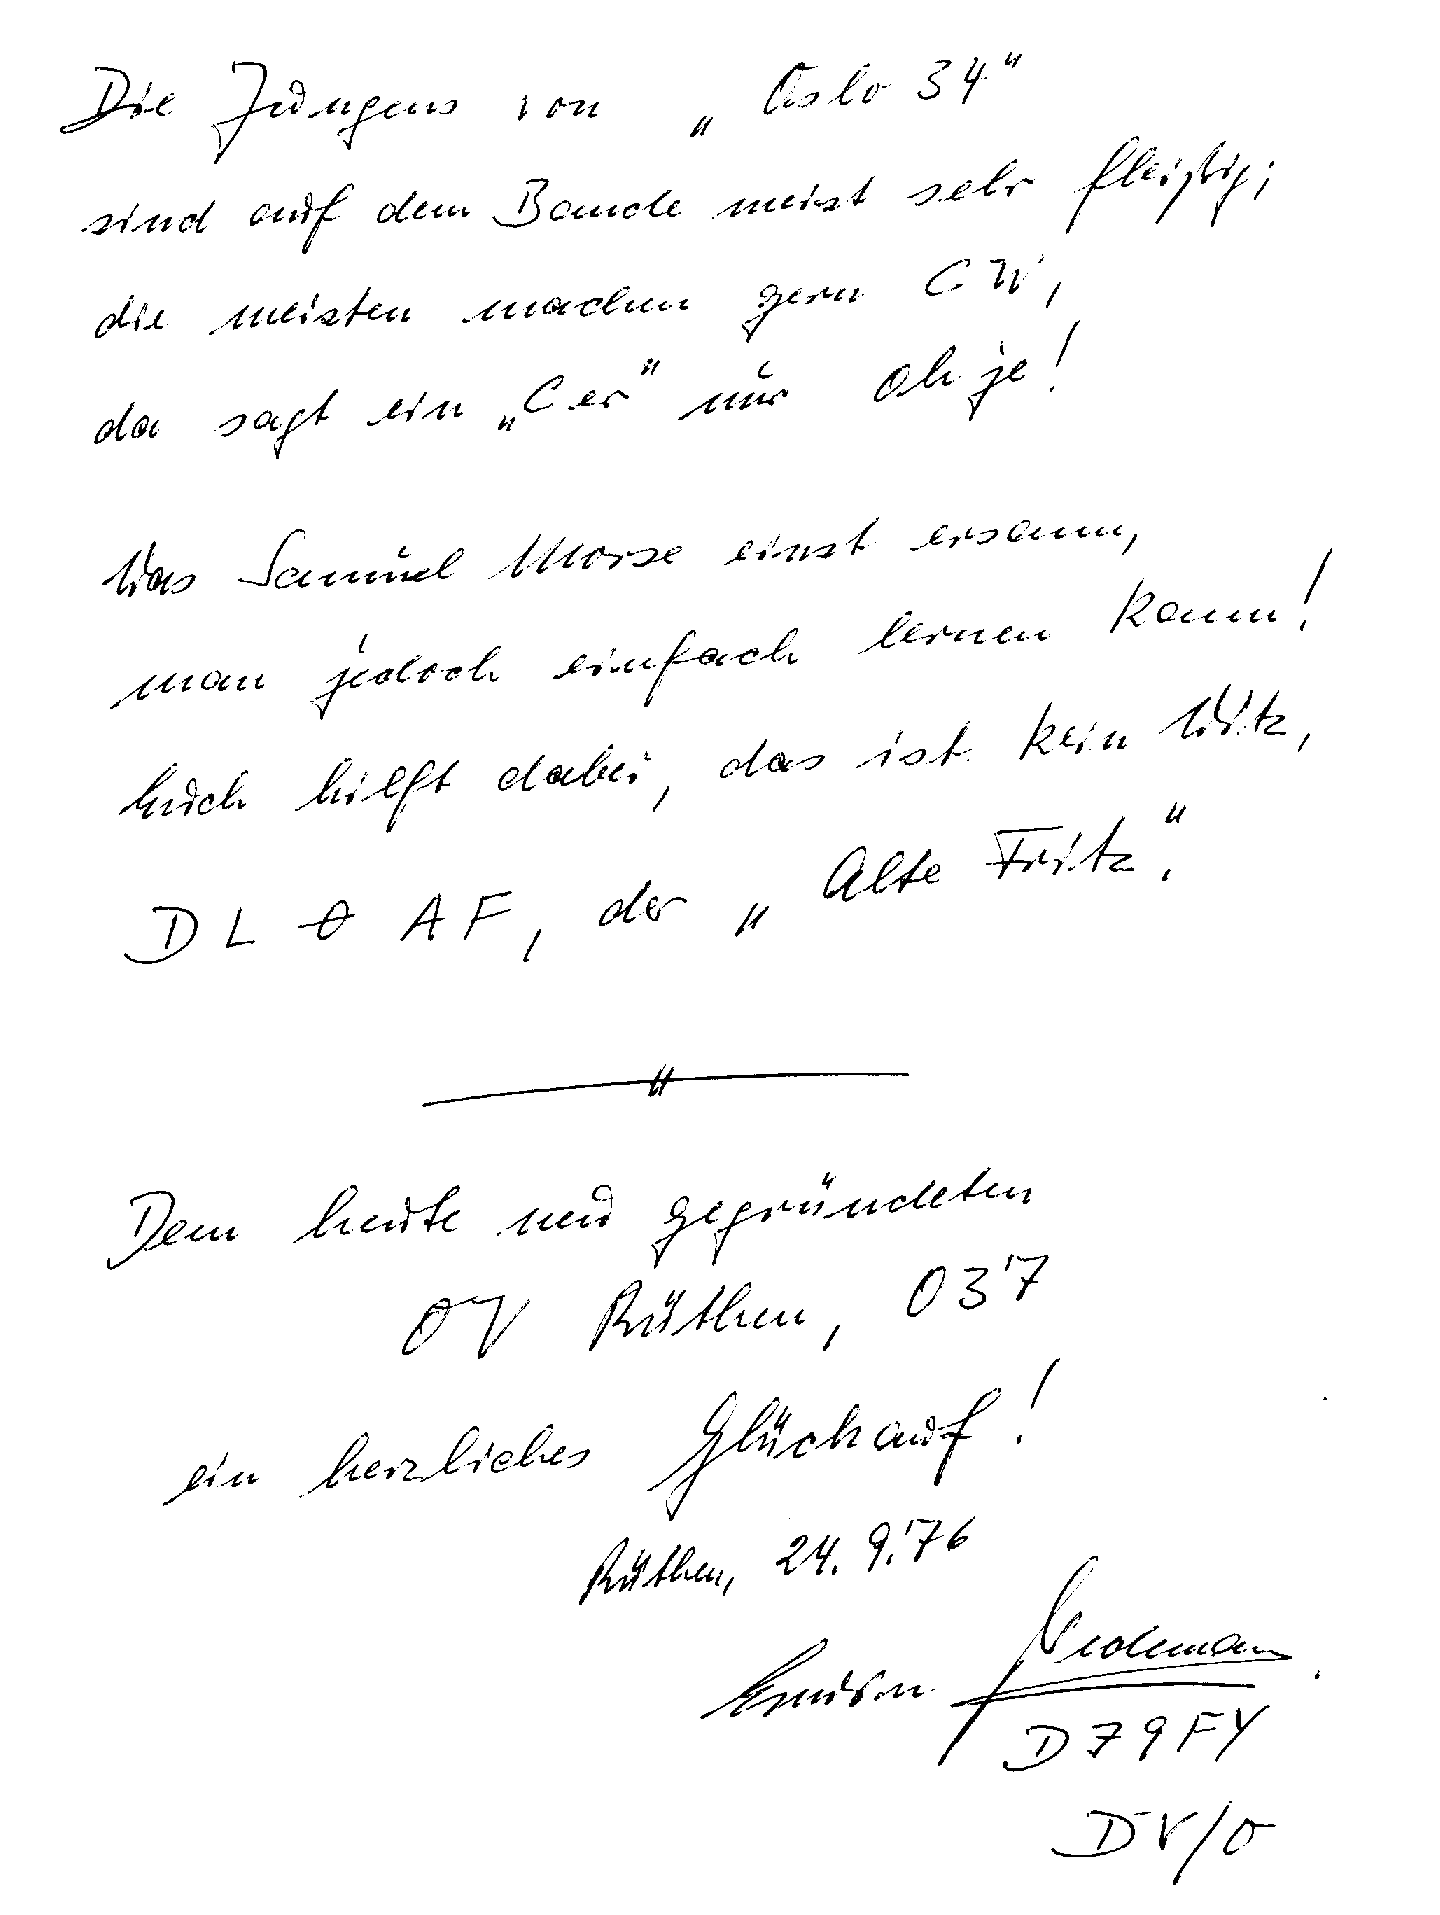 Die Jungens von „Oslo 34"
sind auf dem Bande meist sehr fleißig;
die meisten machen gern CW,
da sagt ein „Cer" nur oh je!
Was Samuel Morse einst ersann,
man jedoch einfach lernen kann!
Euch hilft dabei, das ist kein Witz,
DL0AF, der „Alte Fritz".
Dem heute neu gegründeten
OV Rüthen, O37
ein herzliches Glückauf!
Rüthen, 24.9.'76
DJ9FY
DV/O